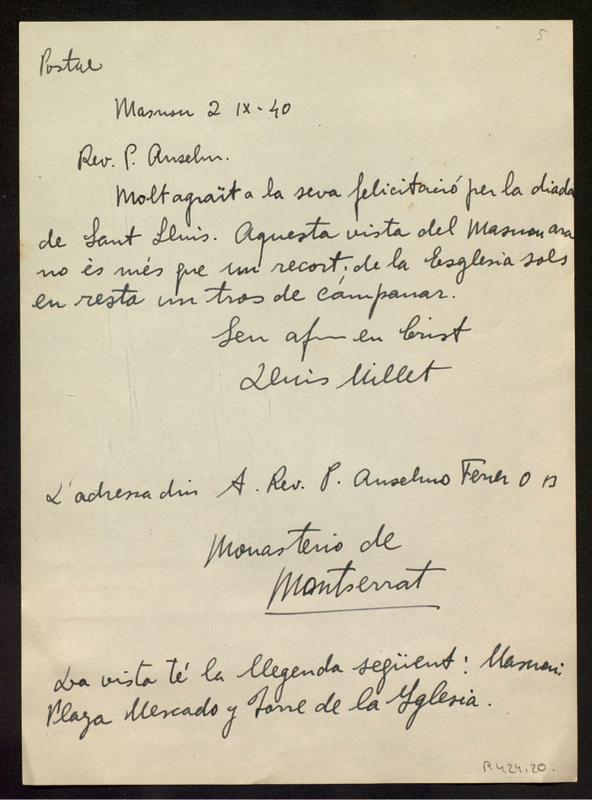 5
Postal
Masnou 2 IX-40
Rev. P. Anselm.
Molt agraït a la seva felicitació per la diada
de Sant Lluis. Aquesta vista del Masnou ara
no és més que un recort; de la Esglesia sols
en resta un tros de campanar.
Seu afm en Crist
Lluis Millet
L'adressa diu A. Rev. P. Anselmo Ferrer O B
Monasterio de
Montserrat
La vista té la llegenda següent: Masnou:
Plaza Mercado y Torre de la Yglesia.
R424.20.